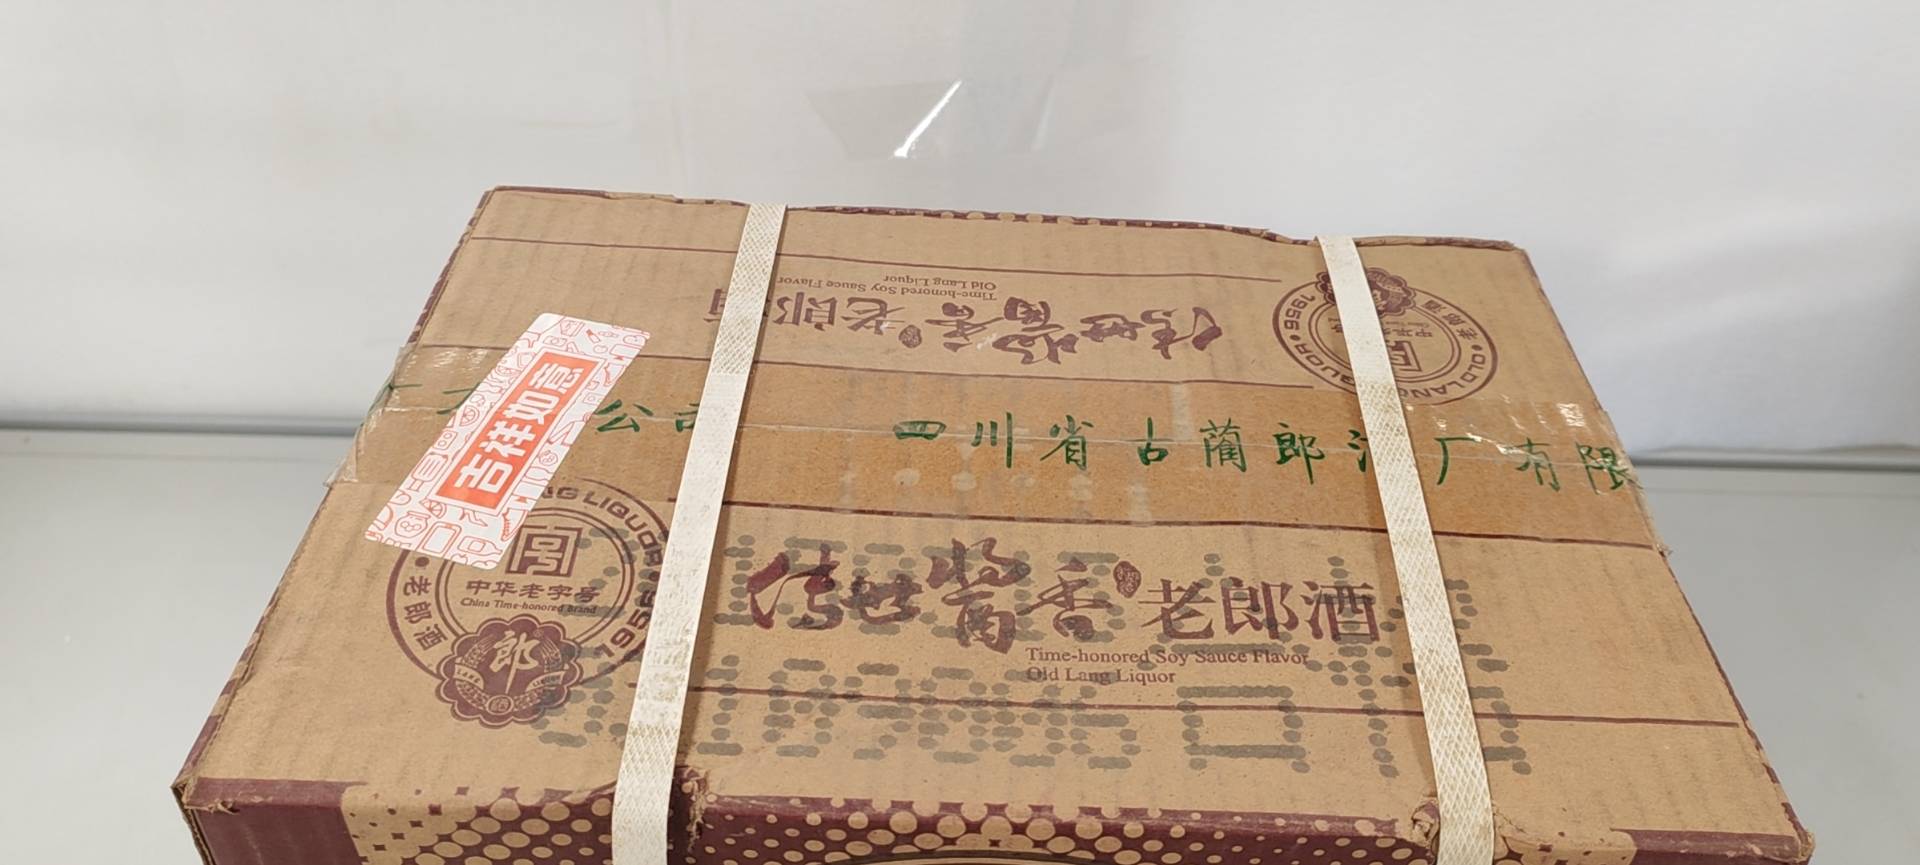 Time-honored Soy Sauce Flavor
Old Lang Liquor
传世酱香老郎酒
1956
老郎酒
OLD LANG
QUOR
吉祥如意
公司 四川省古蔺郎酒厂有限
G LIQUOR
1956
老郎酒
中华老字号
China Time-honored Brand
郎
传世酱香老郎酒
Time-honored Soy Sauce Flavor
Old Lang Liquor